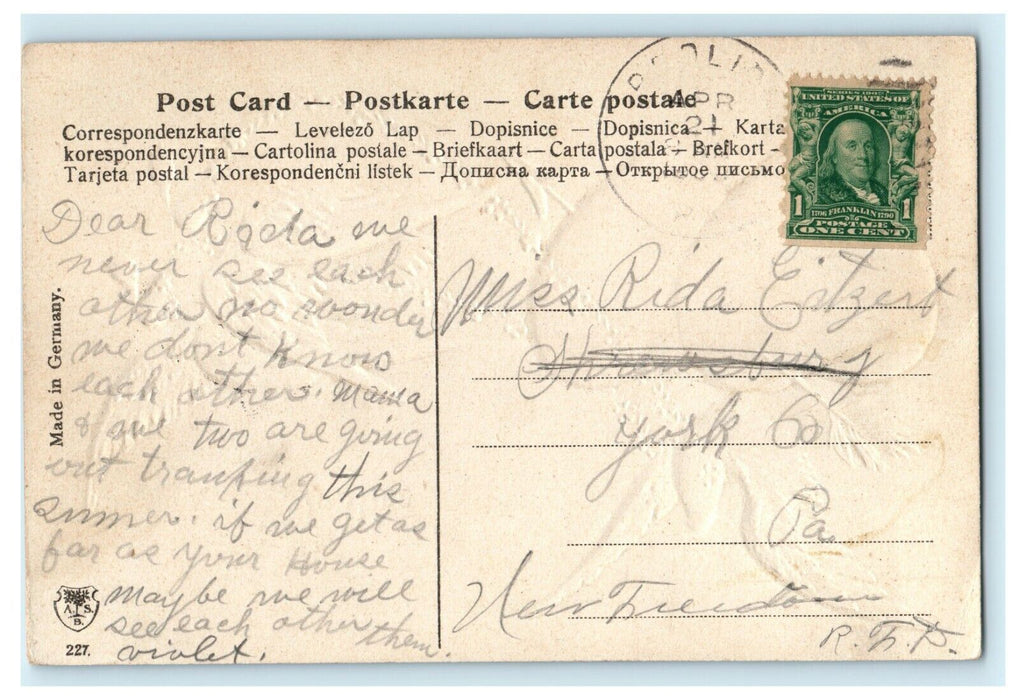 Post Card — Postkarte — Carte postale
Correspondenzkarte — Levelező Lap — Dopisnice — Dopisnica — Karta
korespondencyjna — Cartolina postale — Briefkaart — Carta postala — Brefkort -
Tarjeta postal — Korespondenčni listek — Дописна карта — Открытое письмо
APR
21
SERIES 1902
UNITED STATES OF
AMERICA
1 1
1706 FRANKLIN 1790
POSTAGE
ONE CENT
Dear Rida we
never see each
other no wonder
we dont know
each other. Mama
& we two are going
out tramping this
summer. if we get as
far as your House
maybe we will
see each other then.
violet.
Miss Rida
Shrewsbury
York Co
Pa.
New Freedom
R.F.D.
Made in Germany.
A. S.
B.
227.